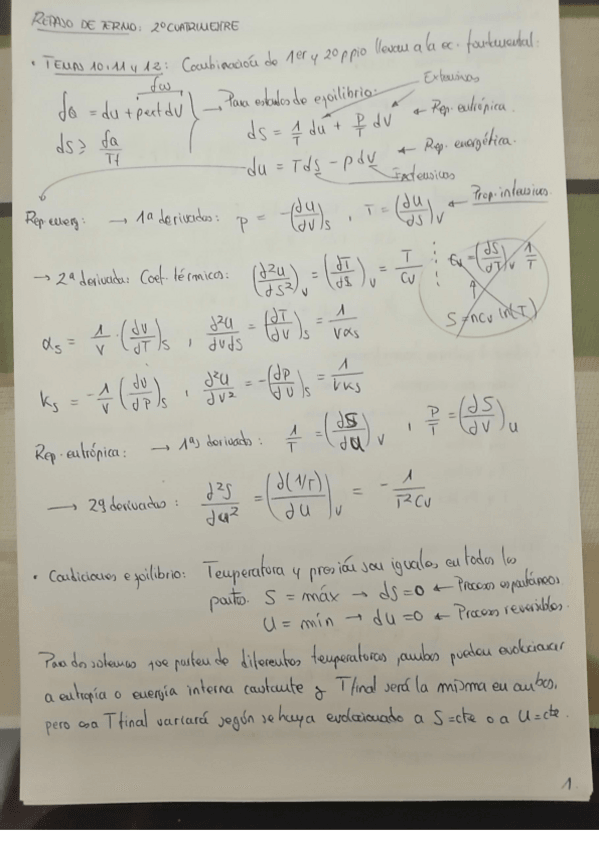 REPASO DE TERMO: 2º CUATRIMESTRE
· TEMAS 10, 11 y 12: Combinación de 1er y 2º ppio llevan a la ec. fundamental.
đw
đQ = du + pext dV
dS ≥ đQ/Tf
→ Para estados de equilibrio:
Extensivos
dS = 1/T du + P/T dV ← Rep. entrópica.
du = TdS - pdV ← Rep. energética.
Extensivos
Rep energ: → 1ª derivadas: p = -(∂U/∂V)_S , T = (∂U/∂S)_V ← Prop. intensivas.
→ 2ª derivada: Coef. térmicos: (∂²U/∂S²)_V = (∂T/∂S)_V = T/Cv
Cv = (∂S/∂T)_V 1/T
S = nCv ln(T)
αs = 1/V · (∂V/∂T)_S , ∂²U/∂V∂S = (∂T/∂V)_S = 1/Vαs
Ks = -1/V (∂V/∂P)_S , ∂²U/∂V² = -(∂P/∂V)_S = 1/VKs
Rep. entrópica: → 1ªs derivadas: 1/T = (∂S/∂U)_V , P/T = (∂S/∂V)_U
→ 2ªs derivadas: ∂²S/∂U² = (∂(1/T)/∂U)_V = - 1/T²Cv
· Condiciones equilibrio: Temperatura y presión son iguales en todas las
partes. S = máx → dS = 0 ← Procesos espontáneos.
U = mín → dU = 0 ← Procesos reversibles.
Para dos sistemas que parten de diferentes temperaturas, ambos pueden evolucionar
a entropía o energía interna constante y Tfinal será la misma en ambos,
pero esa Tfinal variará según se haya evolucionado a S=cte o a U=cte.
1